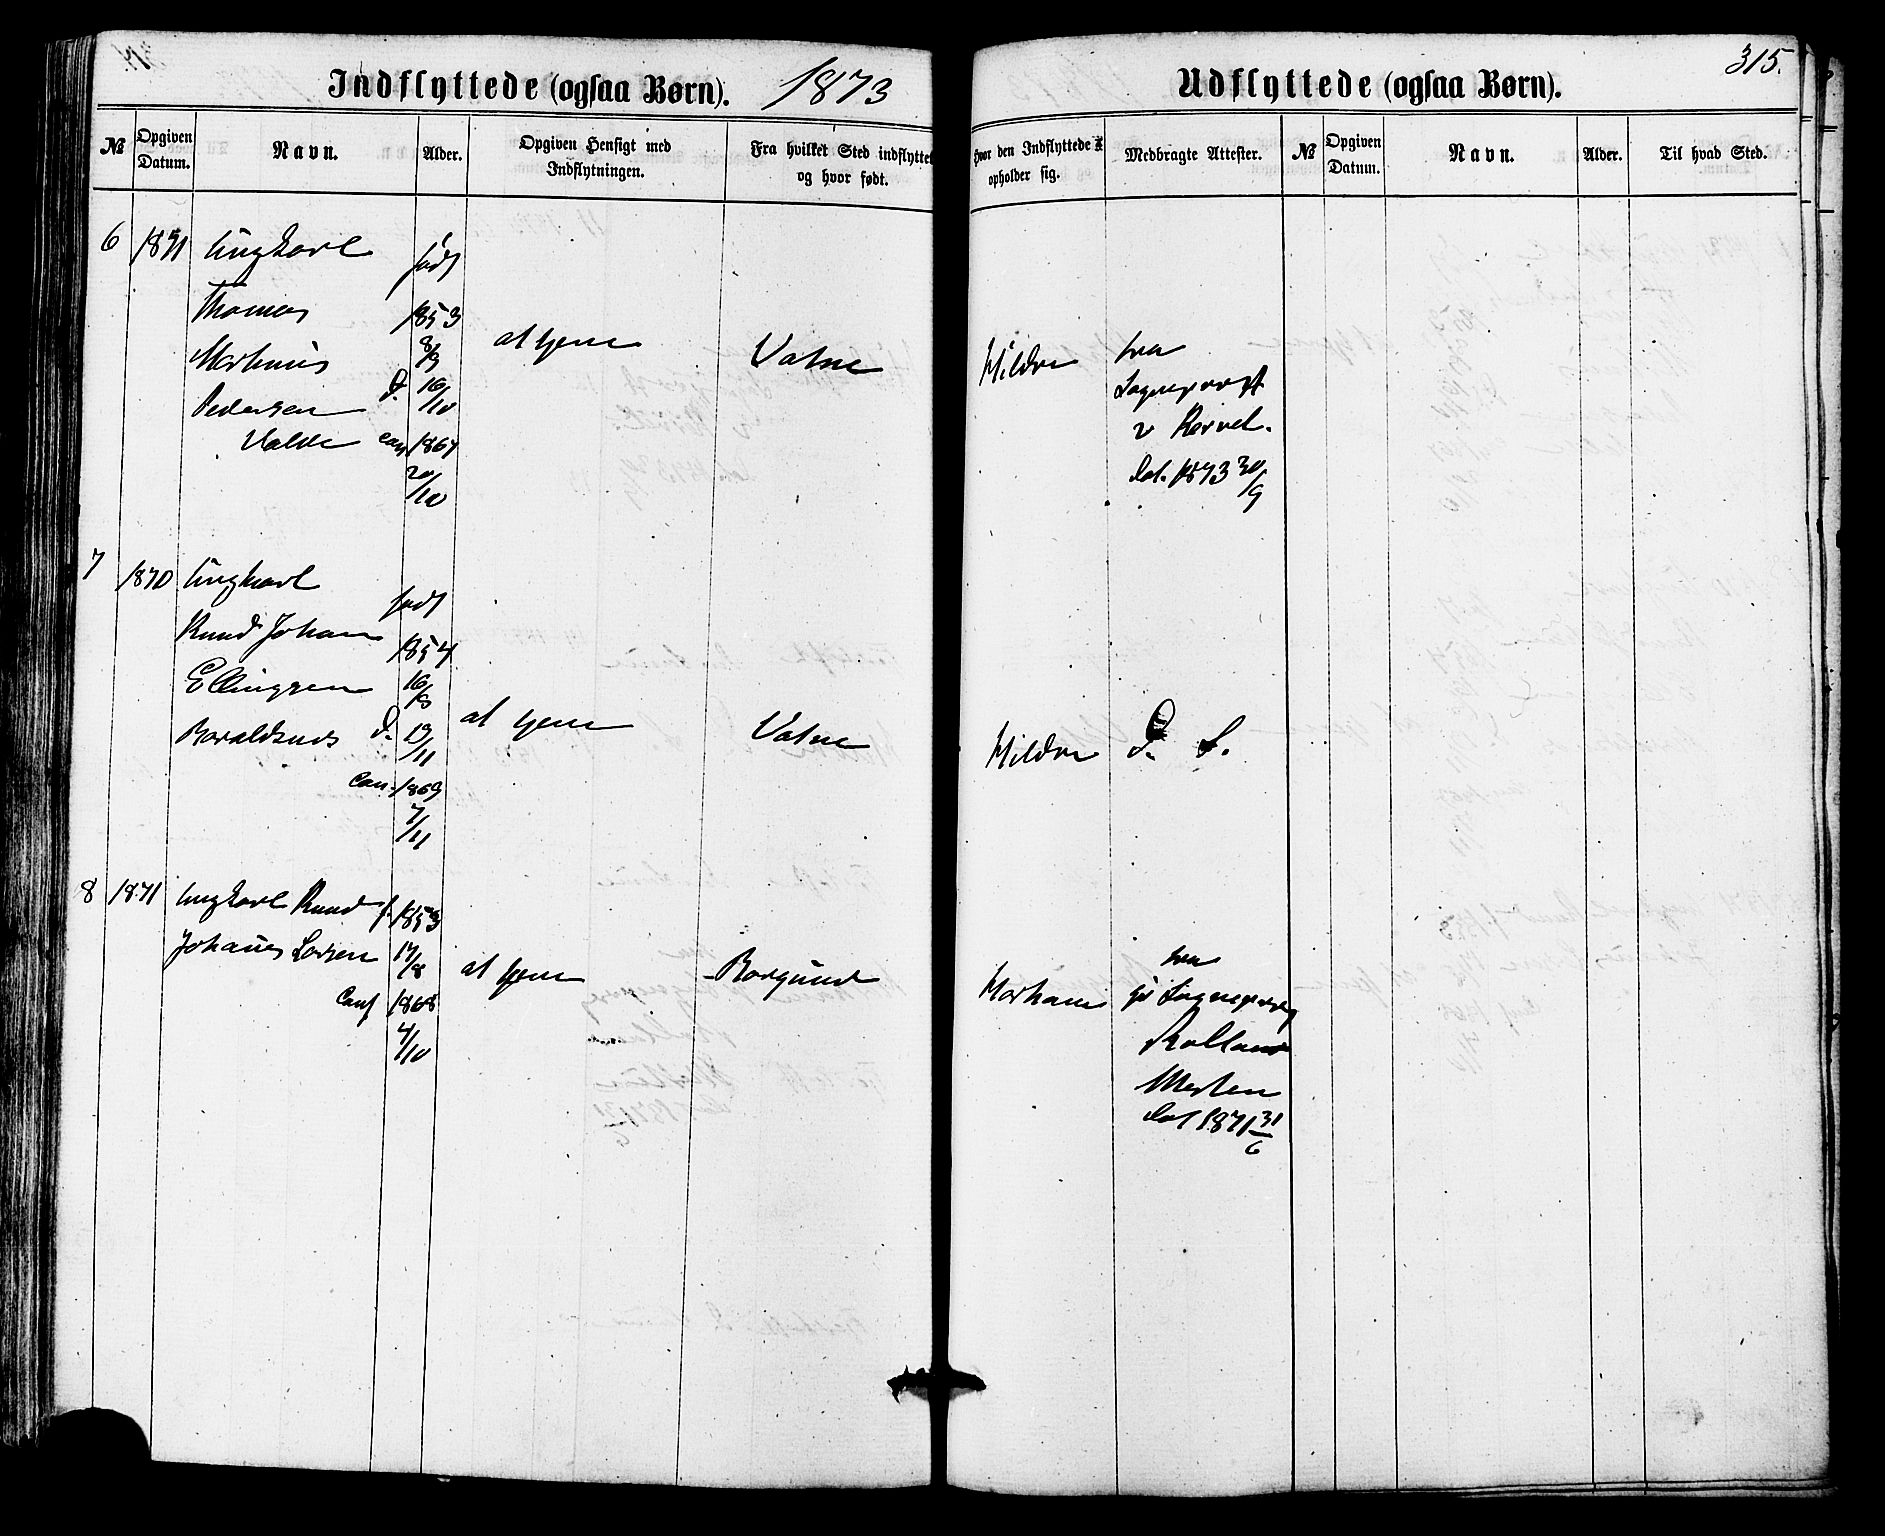 Indflyttede (ogsaa Børn). 1873
Udflyttede (ogsaa Børn). 315.
№
Opgiven Datum.
Navn.
Alder.
Opgiven Hensigt med Indflytningen.
Fra hvilket Sted indflyttet og hvor født.
Hvor den Indflyttede opholder sig.
Medbragte Attester.
№
Opgiven Datum.
Navn.
Alder.
Til hvad Sted.
6 1871 Ungkarl født
Thomas 1853
Martinus 8/9
Pedersen D. 16/10
Valde Conf 1867
20/10
at tjene
Vatne
Hildre
fra
Sogneprest
v
Dat. 1873 30/9
7 1870 Ungkarl født
Knud Johan 1854
Ellingsen 16/10
Baraldsnes D. 19/11
Con. 1869
7/11
at tjene
Vatne
Hildre
D. S.
8 1871 Ungkarl Knud f. 1853
Johannes Larsen 17/8
Conf 1868
4/10
at tjene
Borgund
fra
Dat 1871 31/6